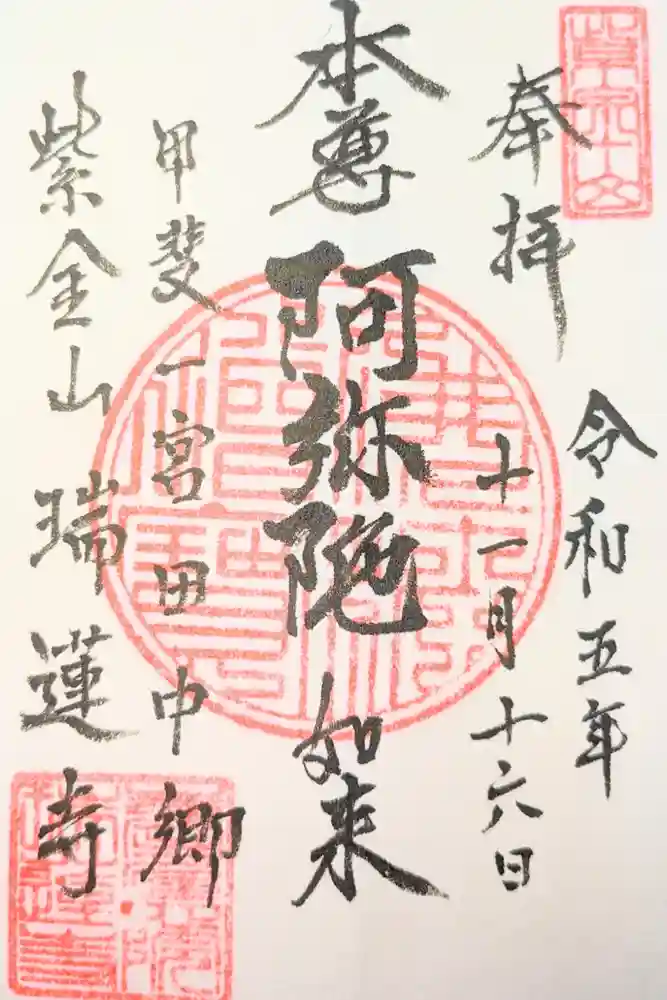 奉拝
令和五年
十一月十六日
本尊 阿弥陀如来
甲斐一宮田中郷
紫金山瑞蓮寺
紫金山